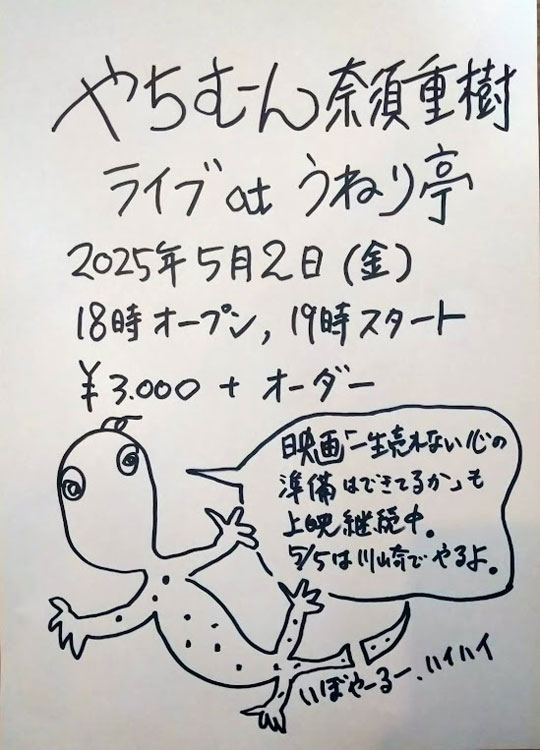 やちむーん奈須重樹
ライブat うねり亭
2025年5月2日(金)
18時オープン, 19時スタート
¥3.000 + オーダー
映画「一生売れない心の
準備はできてるか」も
上映継続中。
5/5は川崎でやるよ。
いぼやーるー、ハイハイ